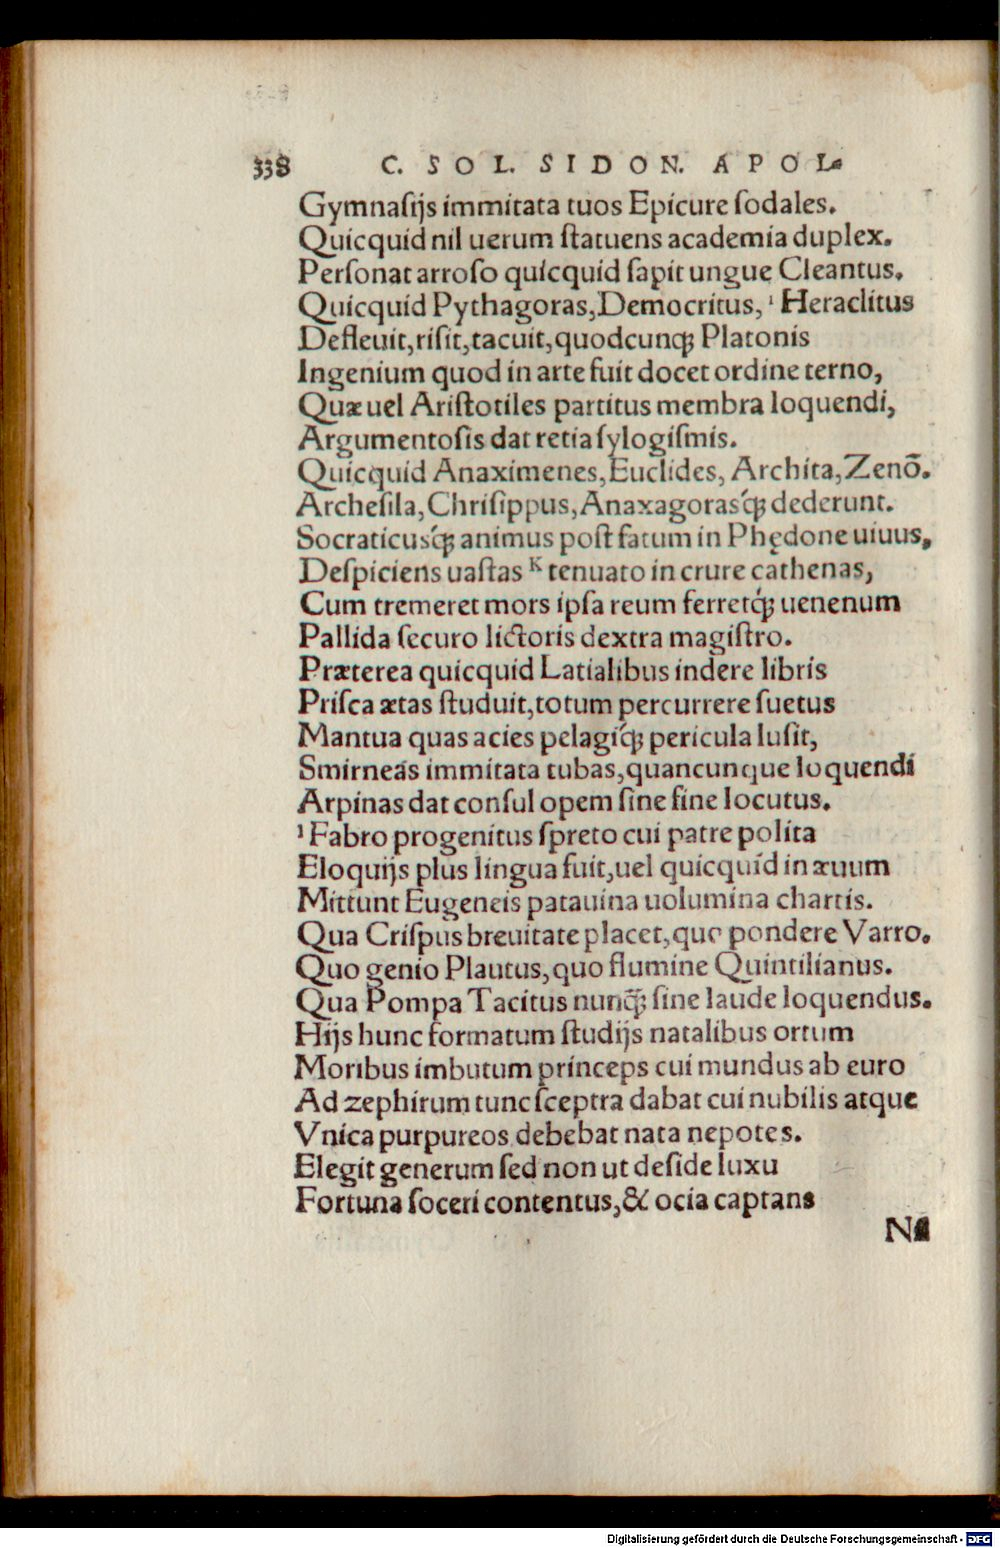 338 C. SOL. SIDON. APOL.
Gymnaſijs immitata tuos Epicure ſodales.
Quicquid nil uerum ſtatuens academia duplex.
Perſonat arroſo quicquid ſapit ungue Cleantus.
Quicquid Pythagoras,Democritus, ¹ Heraclitus
Defleuit,riſit,tacuit,quodcunq; Platonis
Ingenium quod in arte fuit docet ordine terno,
Quæ uel Ariſtotiles partitus membra loquendi,
Argumentoſis dat retia ſylogiſmis.
Quicquid Anaximenes,Euclides, Archita,Zenō.
Archeſila,Chriſippus,Anaxagorasq́; dederunt.
Socraticusq́; animus poſt fatum in Phędone uiuus,
Deſpiciens uaſtas ᴷ tenuato in crure cathenas,
Cum tremeret mors ipſa reum ferretq́; uenenum
Pallida ſecuro lictoris dextra magiſtro.
Præterea quicquid Latialibus indere libris
Priſca ætas ſtuduit,totum percurrere ſuetus
Mantua quas acies pelagiq́; pericula luſit,
Smirneás immitata tubas,quancunque loquendi
Arpinas dat conſul opem ſine fine locutus.
¹ Fabro progenitus ſpreto cui patre polita
Eloquijs plus lingua fuit,uel quicquid in æuum
Mittunt Eugeneis patauina uolumina chartis.
Qua Criſpus breuitate placet,quo pondere Varro.
Quo genio Plautus,quo flumine Quintilianus.
Qua Pompa Tacitus nunq̃; ſine laude loquendus.
Hijs hunc formatum ſtudijs natalibus ortum
Moribus imbutum princeps cui mundus ab euro
Ad zephirum tunc ſceptra dabat cui nubilis atque
Vnica purpureos debebat nata nepotes.
Elegit generum ſed non ut deſide luxu
Fortuna ſoceri contentus,& ocia captans
Digitalisierung gefördert durch die Deutsche Forschungsgemeinschaft - DFG